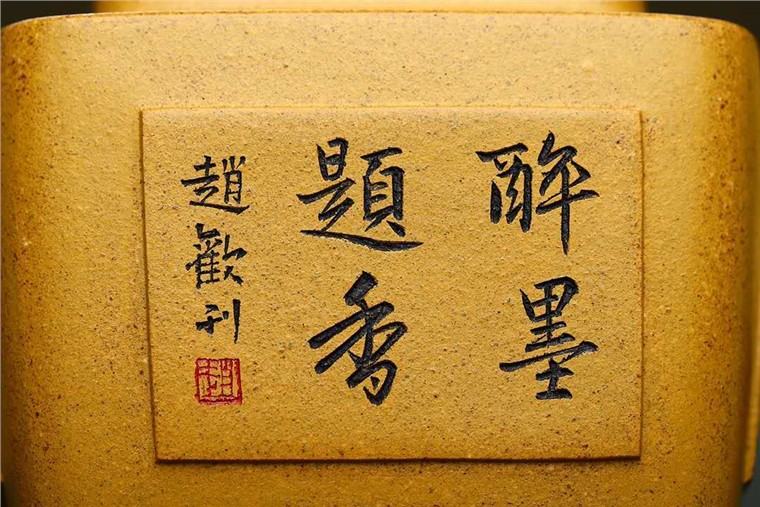 醉墨
題香
趙歡刊